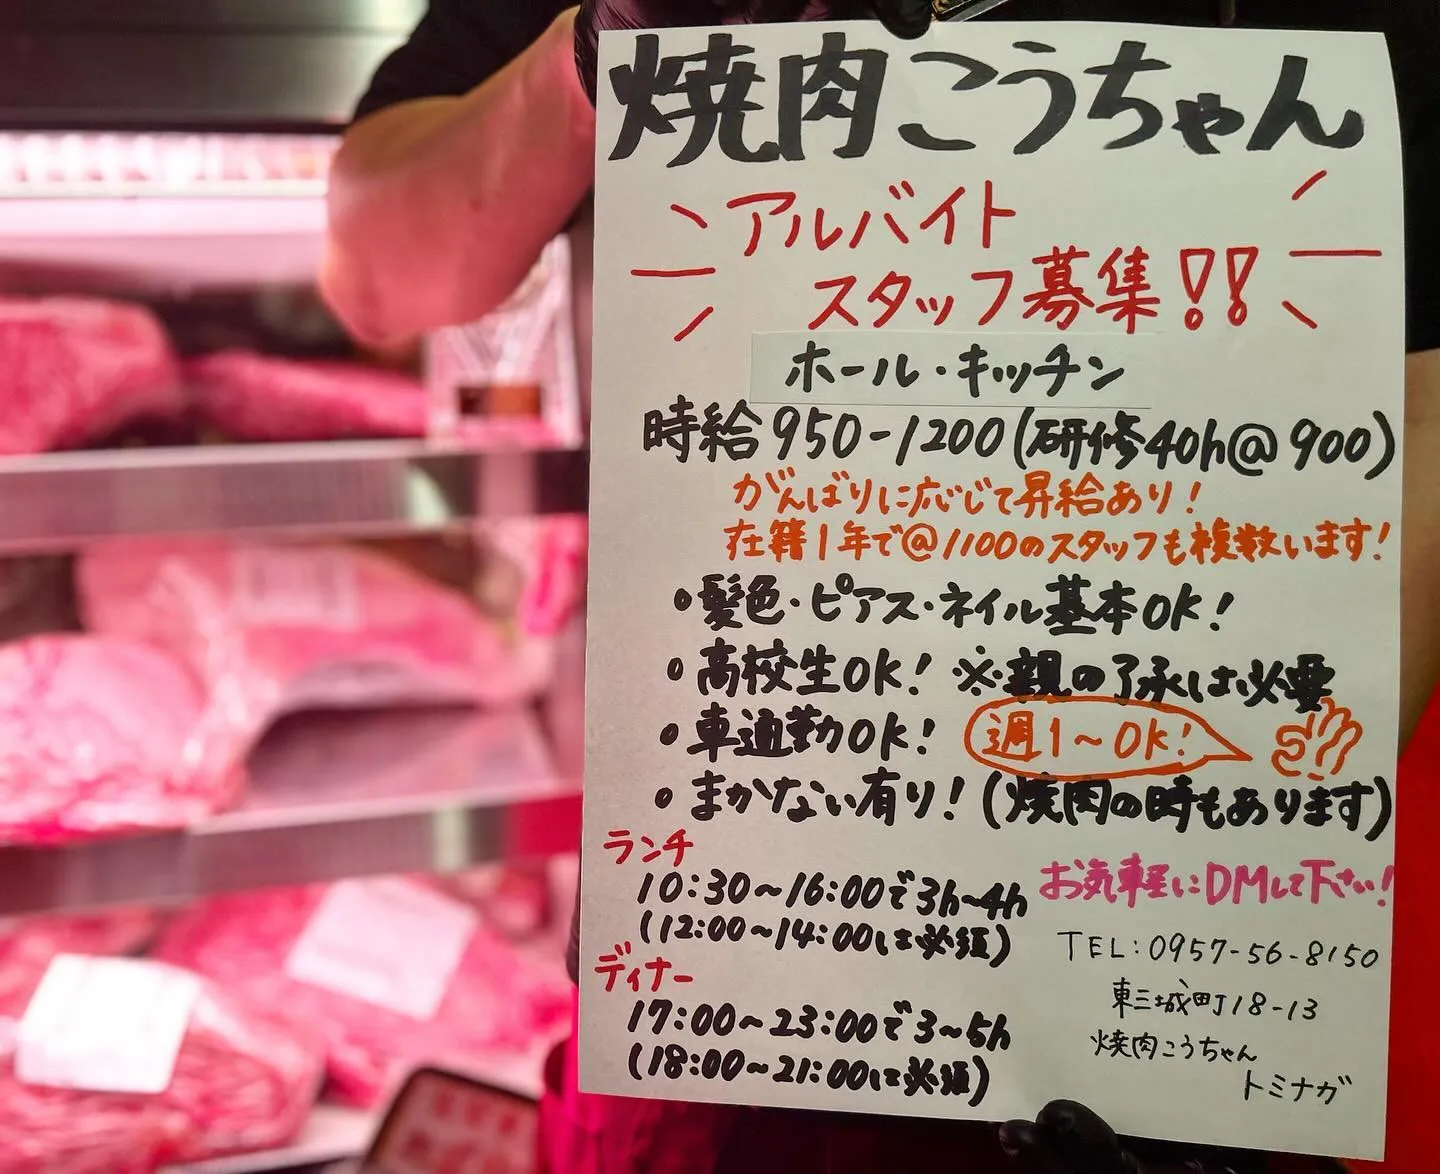 焼肉こうちゃん
アルバイト
スタッフ募集!!
ホール・キッチン
時給950-1200(研修40h@900)
がんばりに応じて昇給あり!
在籍1年で@1100のスタッフも複数います!
・髪色・ピアス・ネイル基本OK!
・高校生OK! ※親の了承は必要
・車通勤OK! 週1~OK!
・まかない有り!(焼肉の時もあります)
ランチ
10:30~16:00で3h~4h
(12:00~14:00は必須)
ディナー
17:00~23:00で3~5h
(18:00~21:00は必須)
お気軽にDMして下さい!
TEL:0957-56-8150
東三城町18-13
焼肉こうちゃん
トミナガ